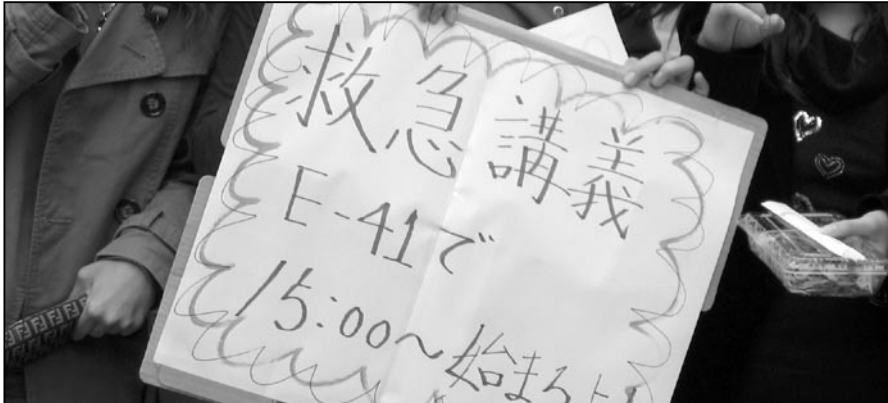 救急講義
E-41で
15:00〜始まるよ!